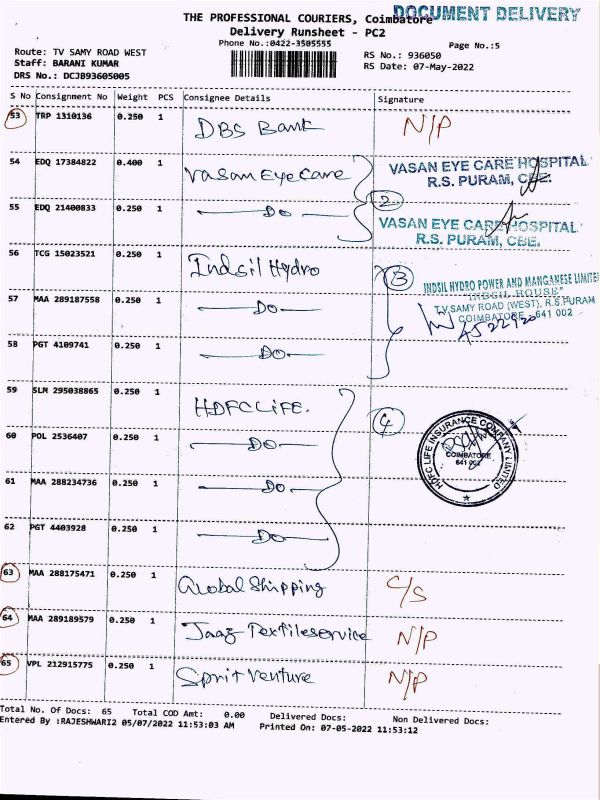 THE PROFESSIONAL COURIERS, Coimbatore
DOCUMENT DELIVERY
Delivery Runsheet - PC2
Phone No.:0422-3505555
Page No.:5
Route: TV SAMY ROAD WEST
Staff: BARANI KUMAR
DRS No.: DCJB93605005
RS No.: 936050
RS Date: 07-May-2022
S No Consignment No Weight PCS Consignee Details Signature
53 TRP 1310136 0.250 1 DBS Bank N/P
54 EDQ 17384822 0.400 1 Vasan Eye Care
VASAN EYE CARE HOSPITAL
R.S. PURAM, CBE.
2
55 EDQ 21400833 0.250 1 DO
VASAN EYE CARE HOSPITAL
R.S. PURAM, CBE.
56 TCG 15023521 0.250 1 Indsil Hydro
3
INDSIL HYDRO POWER AND MANGANESE LIMITE
"INDSIL HOUSE"
T.V.SAMY ROAD (WEST), R.S.PURAM
COIMBATORE - 641 002
57 MAA 289187558 0.250 1 DO
58 PGT 4109741 0.250 1 DO
59 SLM 295038865 0.250 1 HDFC LIFE.
4
HDFC LIFE INSURANCE COMPANY LIMITED
COIMBATORE
641 002
60 POL 2536407 0.250 1 DO
61 MAA 288234736 0.250 1 DO
62 PGT 4403928 0.250 1 DO
63 MAA 288175471 0.250 1 Global Shipping C/S
64 MAA 289189579 0.250 1 Jaaz Textileservice N/P
65 VPL 212915775 0.250 1 Sprit Venture N/P
Total No. Of Docs: 65 Total COD Amt: 0.00 Delivered Docs: Non Delivered Docs:
Entered By :RAJESHWARI2 05/07/2022 11:53:03 AM Printed On: 07-05-2022 11:53:12